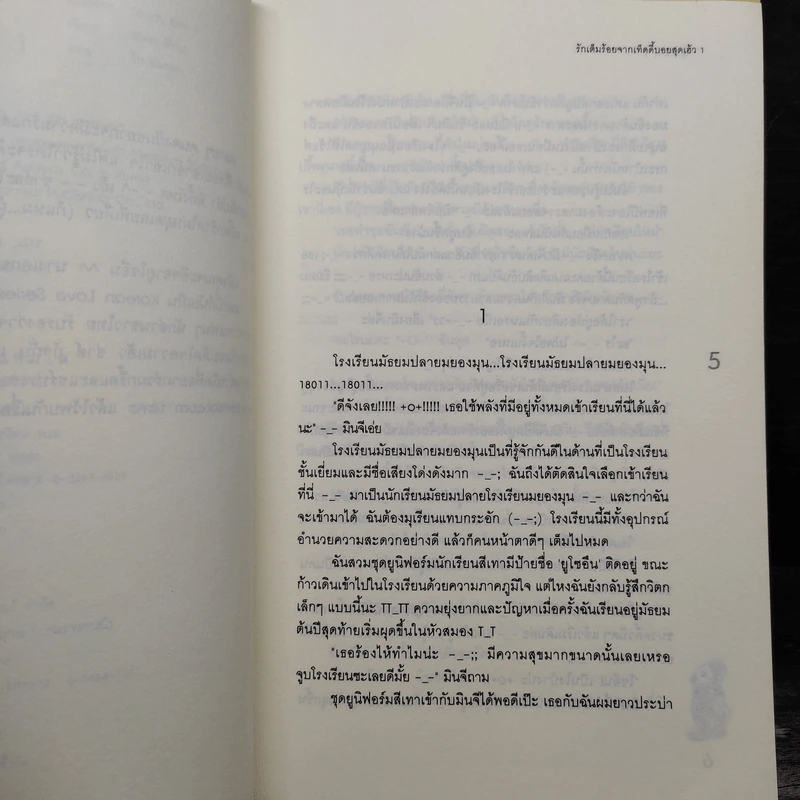 รักเต็มร้อยจากเท็ดดี้บอยสุดเฮ้ว 1
1
5
โรงเรียนมัธยมปลายมยองมุน...โรงเรียนมัธยมปลายมยองมุน...
18011...18011...
"ดีจังเลย!!!!! +o+!!!!! เธอใช้พลังที่มีอยู่ทั้งหมดเข้าเรียนที่นี่ได้แล้ว
นะ" -_- มินจีเอ่ย
โรงเรียนมัธยมปลายมยองมุนเป็นที่รู้จักกันดีในด้านที่เป็นโรงเรียน
ชั้นเยี่ยมและมีชื่อเสียงโด่งดังมาก -_-; ฉันถึงได้ตัดสินใจเลือกเข้าเรียน
ที่นี่ -_- มาเป็นนักเรียนมัธยมปลายโรงเรียนมยองมุน -_- และกว่าฉัน
จะเข้ามาได้ ฉันต้องมุเรียนแทบกระอัก (-_-;) โรงเรียนนี้มีทั้งอุปกรณ์
อำนวยความสะดวกอย่างดี แล้วก็คนหน้าตาดีๆ เต็มไปหมด
ฉันสวมชุดยูนิฟอร์มนักเรียนสีเทามีป้ายชื่อ 'ยูโซอึน' ติดอยู่ ขณะ
ก้าวเดินเข้าไปในโรงเรียนด้วยความภาคภูมิใจ แต่ไหงฉันยังกลับรู้สึกวิตก
เล็กๆ แบบนี้นะ TT_TT ความยุ่งยากและปัญหาเมื่อครั้งฉันเรียนอยู่มัธยม
ต้นปีสุดท้ายเริ่มผุดขึ้นในหัวสมอง T_T
"เธอร้องไห้ทำไมน่ะ -_-;; มีความสุขมากขนาดนั้นเลยเหรอ
จูบโรงเรียนซะเลยดีมั้ย -_-" มินจีถาม
ชุดยูนิฟอร์มสีเทาเข้ากับมินจีได้พอดีเป๊ะ เธอกับฉันผมยาวประบ่า